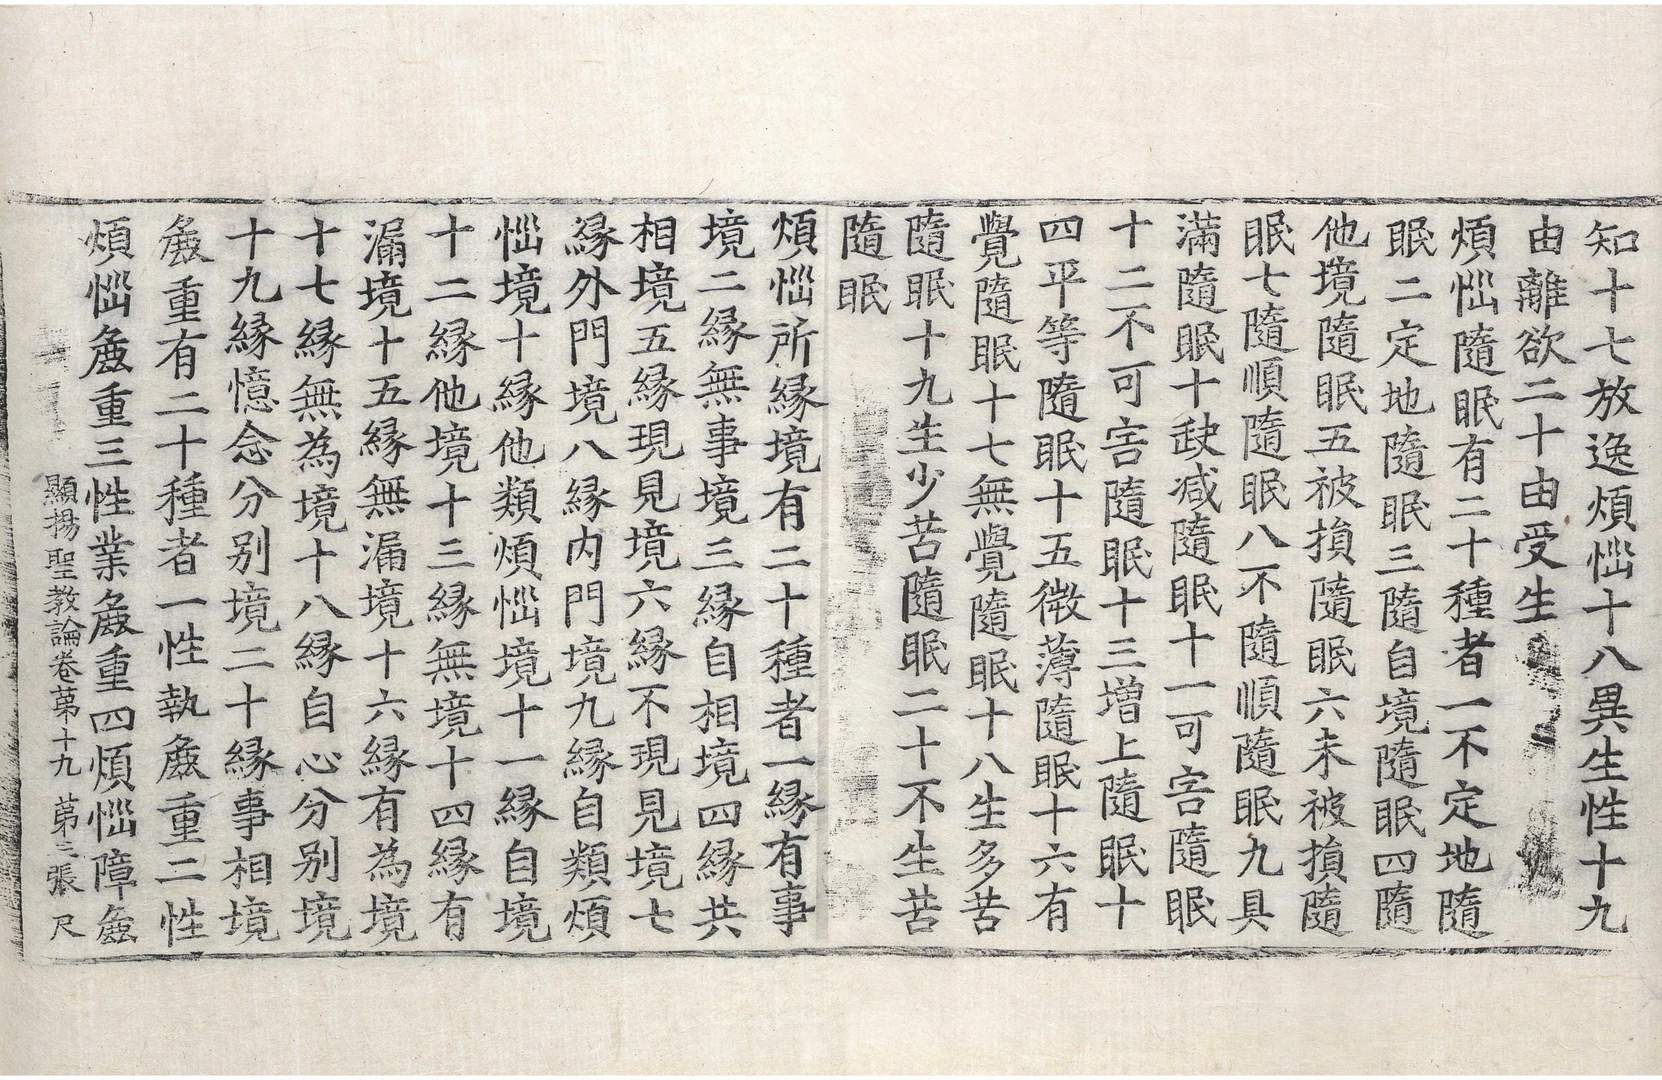 知十七放逸煩惱十八異生性十九
由離欲二十由受生
煩惱隨眠有二十種者一不定地隨
眠二定地隨眠三隨自境隨眠四隨
他境隨眠五被損隨眠六未被損隨
眠七隨順隨眠八不隨順隨眠九具
滿隨眠十缺减隨眠十一可害隨眠
十二不可害隨眠十三增上隨眠十
四平等隨眠十五微薄隨眠十六有
覺隨眠十七無覺隨眠十八生多苦
隨眠十九生少苦隨眠二十不生苦
隨眠
煩惱所緣境有二十種者一緣有事
境二緣無事境三緣自相境四緣共
相境五緣現見境六緣不現見境七
緣外門境八緣内門境九緣自類煩
惱境十緣他類煩惱境十一緣自境
十二緣他境十三緣無境十四緣有
漏境十五緣無漏境十六緣有為境
十七緣無為境十八緣自心分別境
十九緣憶念分別境二十緣事相境
麁重有二十種者一性執麁重二性
煩惱麁重三性業麁重四煩惱障麁
顯揚聖教論卷苐十九 苐三張 尺